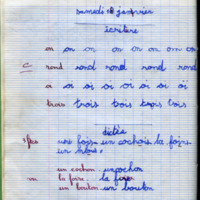 samedi 18 janvier
écriture
on on on on on on on
C rond rond rond rond rond
oi oi oi oi oi oi oi
trois trois trois trois trois
dictée
une fois un cochois la foire
un
un cochon un cochon
m la foire la foire
un bouton un bouton